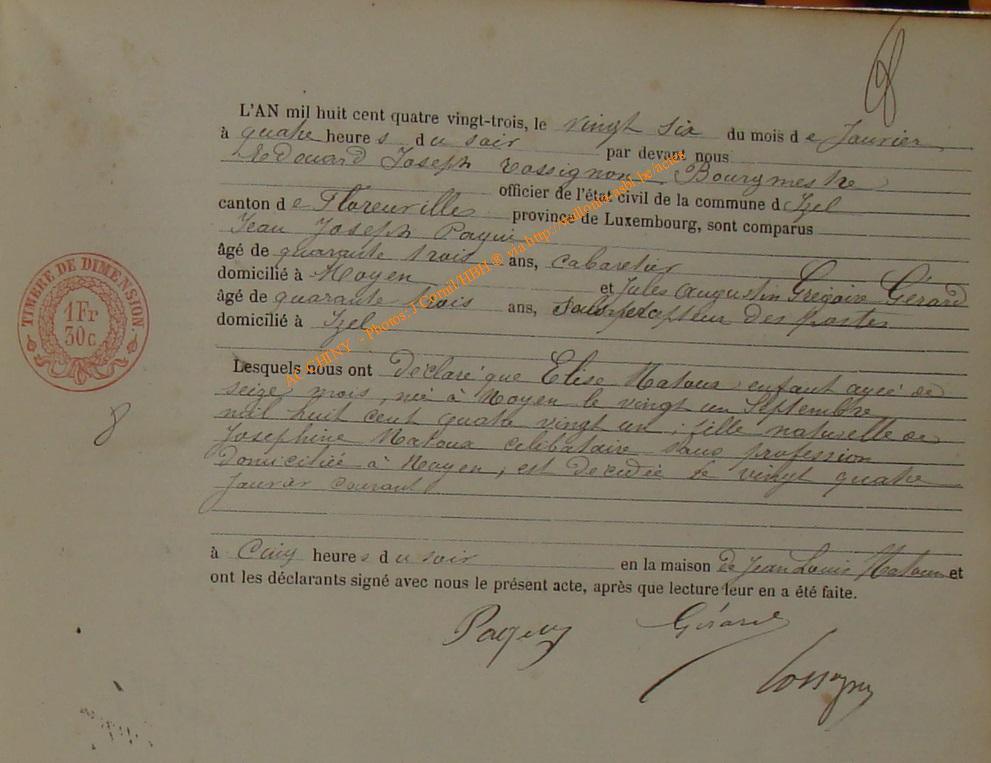 8
L'AN mil huit cent quatre vingt-trois, le vingt six du mois de Janvier
à quatre heures du soir par devant nous
Edouard Joseph Rossignon Bourgmestre
officier de l'état civil de la commune d Izel
canton de Florenville province de Luxembourg, sont comparus
Jean Joseph Paquy
âgé de quarante trois ans, cabaretier
domicilié à Moyen et Jules Augustin Grégoire Gérard
âgé de quarante trois ans, percepteur des postes
domicilié à Izel
Lesquels nous ont déclaré que Elise Matoux enfant agée de
seize mois, née à Moyen le vingt un Septembre
mil huit cent quatre vingt un, fille naturelle de
Joséphine Matoux célibataire sans profession
domiciliée à Moyen, est décédée le vingt quatre
Janvier courant
à Cinq heures du soir en la maison de Jean Louis Matoux et
ont les déclarants signé avec nous le présent acte, après que lecture leur en a été faite.
Paquy Gérard
TIMBRE DE DIMENSION
1 Fr
30 c.
8
Ac CHINY - Photos: J.Cornil/HBH ® via http://wallonia.asbl.be/actes